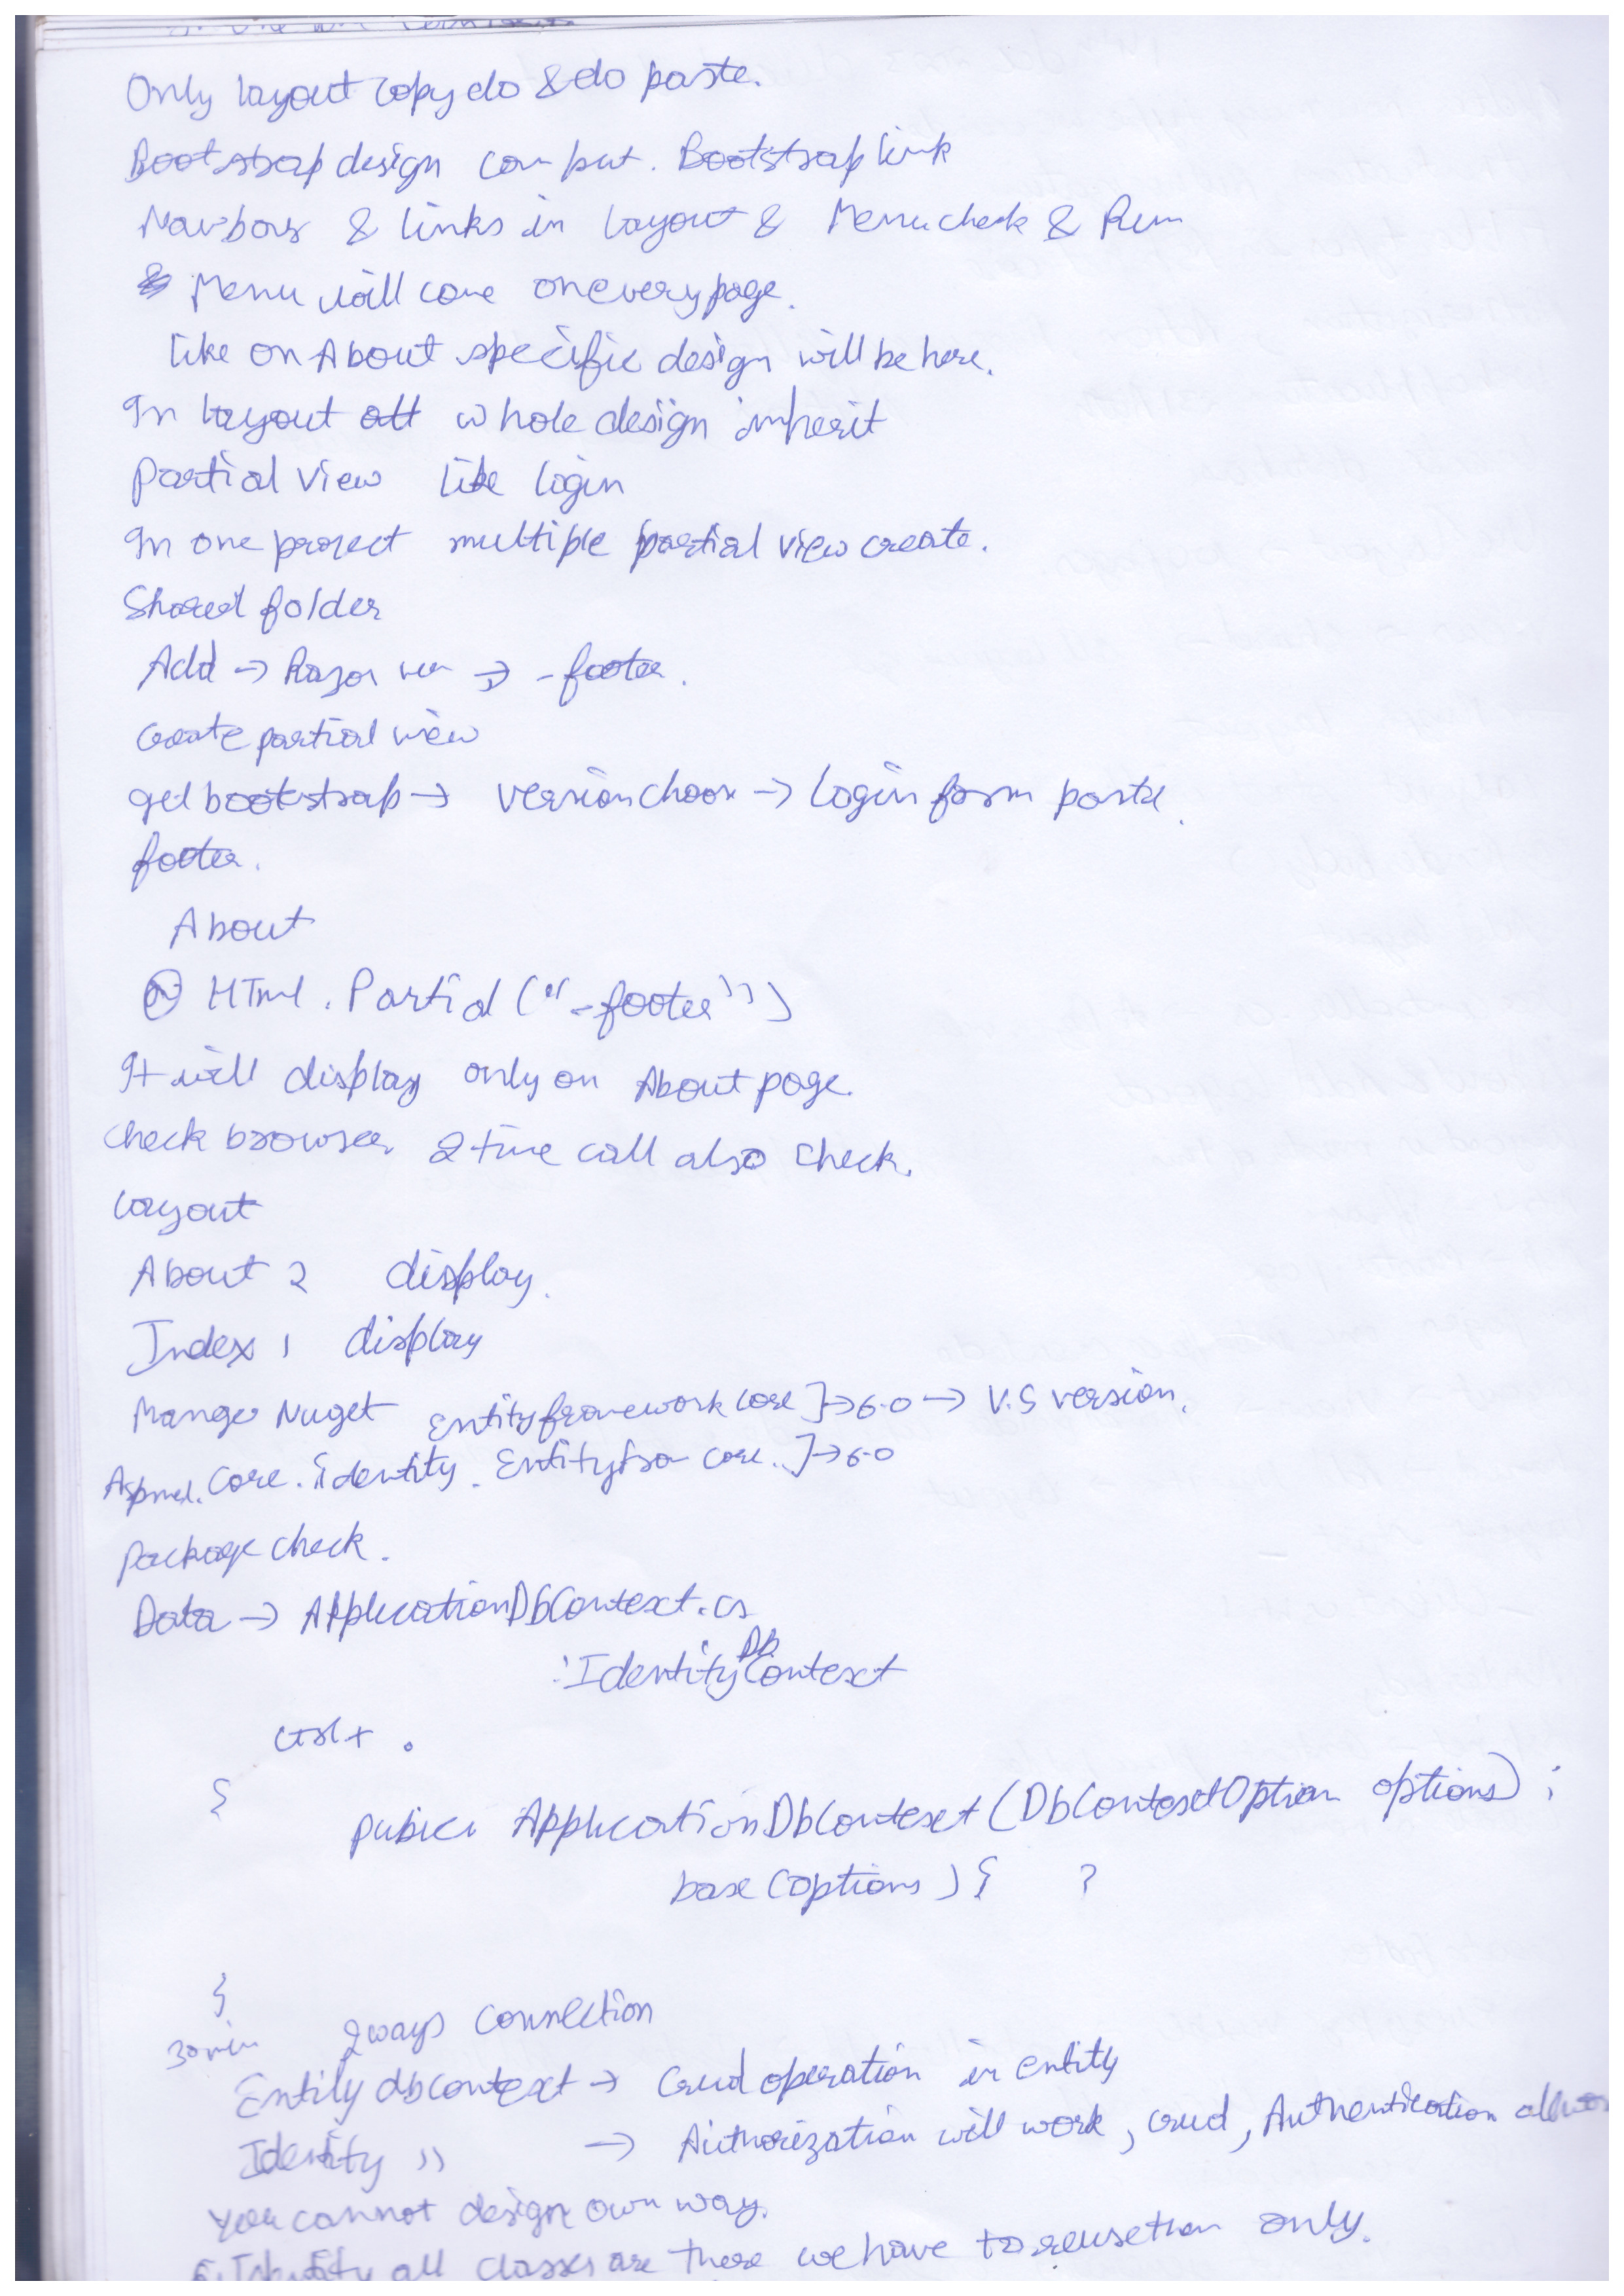 Only layout copy do & do paste.
Bootstrap design can put. Bootstrap link
Navbar & links in layout & Menu check & Run
Menu will come on every page.
like on About specific design will be here.
In layout all whole design inherit
Partial View like login
In one project multiple partial view create.
Shared folder
Add → Razor view → _footer.
Create partial view
get bootstrap → version choose → Login form paste.
footer.
About
@ HTml.Partial ("_footer")
It will display only on About page.
Check browser 2 time call also check.
Layout
About 2 display.
Index 1 display
Manage Nuget Entityframework core ] → 6.0 → V.S version.
Aspnet.Core.identity.Entityfra core. ] → 6.0
package check.
Data → ApplicationDbContext.cs
: IdentityDbContext
ctrl + .
{
public ApplicationDbContext (DbContextOption options) :
base (options) { }
}
30 min 2 ways connection
Entity dbcontext → Crud operation in entity
Identity " → Authorization will work, crud, Authentication
You cannot design own way.
Identity all classes are there we have to reuse then only.